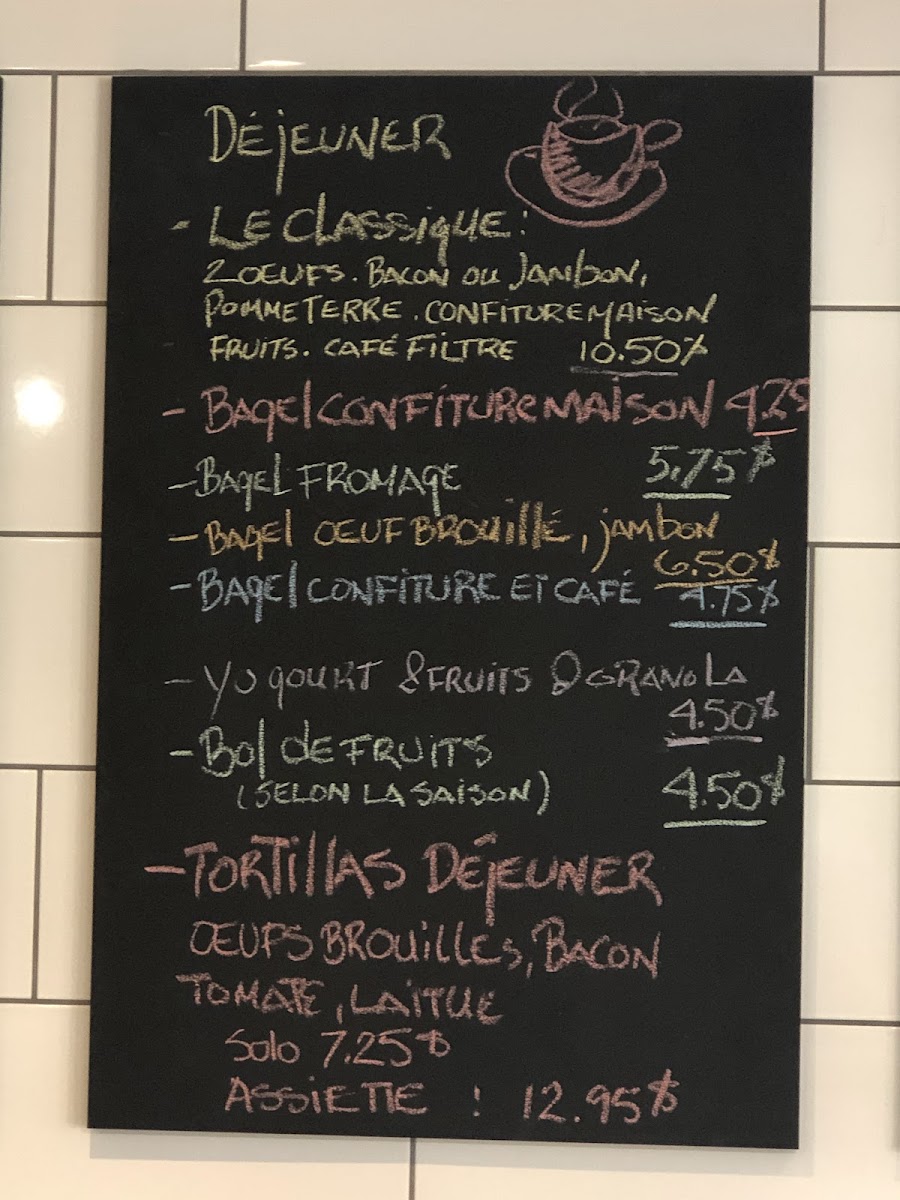 DÉJEUNER
- LE CLASSIQUE :
2 OEUFS. BACON OU JAMBON,
POMME TERRE . CONFITURE MAISON
FRUITS. CAFÉ FILTRE 10.50$
- BAGEL CONFITURE MAISON 4.25
- BAGEL FROMAGE 5,75$
- BAGEL OEUF BROUILLÉ, JAMBON
6.50$
- BAGEL CONFITURE ET CAFÉ 4.75$
- YOGOURT & FRUITS & GRANOLA
4.50$
- BOL DE FRUITS
(SELON LA SAISON) 4.50$
- TORTILLAS DÉJEUNER
OEUFS BROUILLÉS, BACON
TOMATE, LAITUE
SOLO 7.25$
ASSIETTE : 12.95$